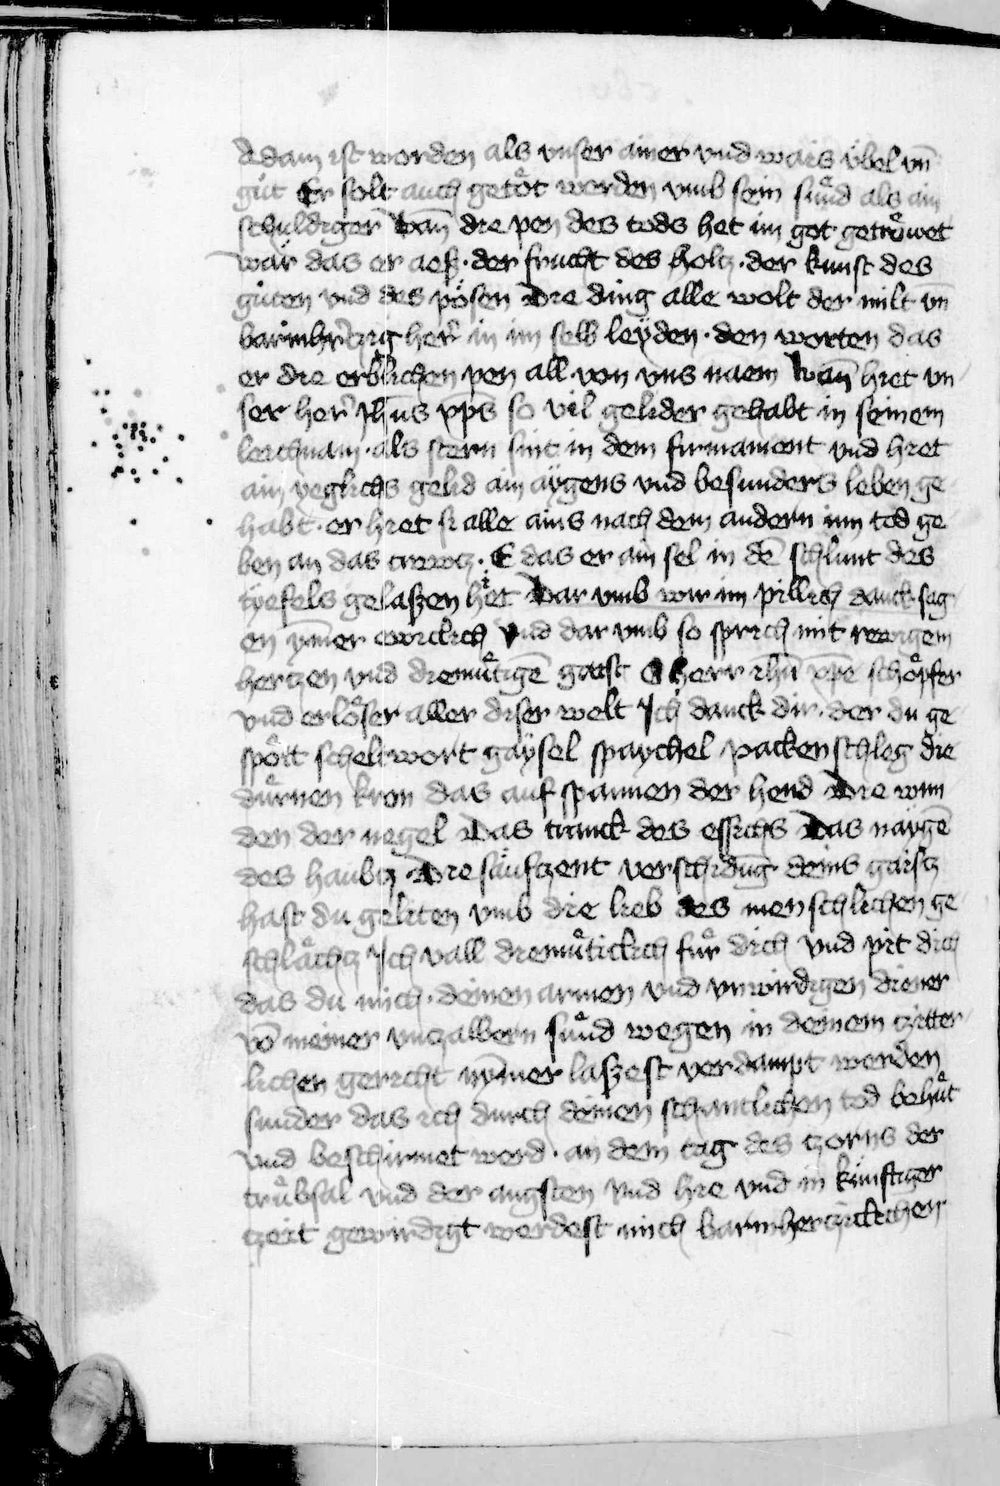 Adam ist worden als vnser ainer vnd wais übel vn̄
gůt Er solt auch getöt werden vmb sein sünd als ain
schuldiger wan̄ die pen des tods het im got getröwet
wär das er aesz · der frucht des holtz · der kunst des
gůten vnd des pösen Die ding alle wolt der milt vn̄
barmhrczig her in im selb leyden · den worten das
er die erblichen pen all von vns naem wan̄ hiet vn
ser her Jhūs xp̄s so vil gelider gehabt in seinem
leichnam · als stern sint in dem firmament vnd hiet
ain yeglichs gelid ain aygens vnd besunders leben ge
habt · er hiet si alle ains nach dem andern inn tod ge
ben an das crewtz · E das er ain sel in dē schlunt des
tyefels gelaszen hiet Dar vmb wir im pillich danck sag
en ym̄er ewicklich Vnd dar vmb so sprich mit rewigem
hertzen vnd diemütigē gaist O herr ihū xp̄e schöpfer
vnd erlöser aller diser welt Ich danck dir · der du ge
spött scheltwort gaysel spaychel packenschleg die
dürnen kron das auf spannen der hend Die wun
den der negel Das tranck des essichs Das naygē
des haubtz · Die säuftzent verschidūg deins gaistz
hast du geliten vmb die lieb des menschlichen ge
schlächtz Ich vall diemüticklich für dich vnd pit dich
das du mich · deinen armen vnd vnwirdigen diener
vō meiner vnzalbern sünd wegen in deinem tzitter
lichen gericht nym̄er laszest verdampt werden
sunder das ich durch deinen schantlichen tod behüt
vnd beschirmet werd · an dem tag des tzorns der
trübsal vnd der angsten vnd hie vnd in künftiger
tzeit gewirdigt werdest mich barmhertzicklichen